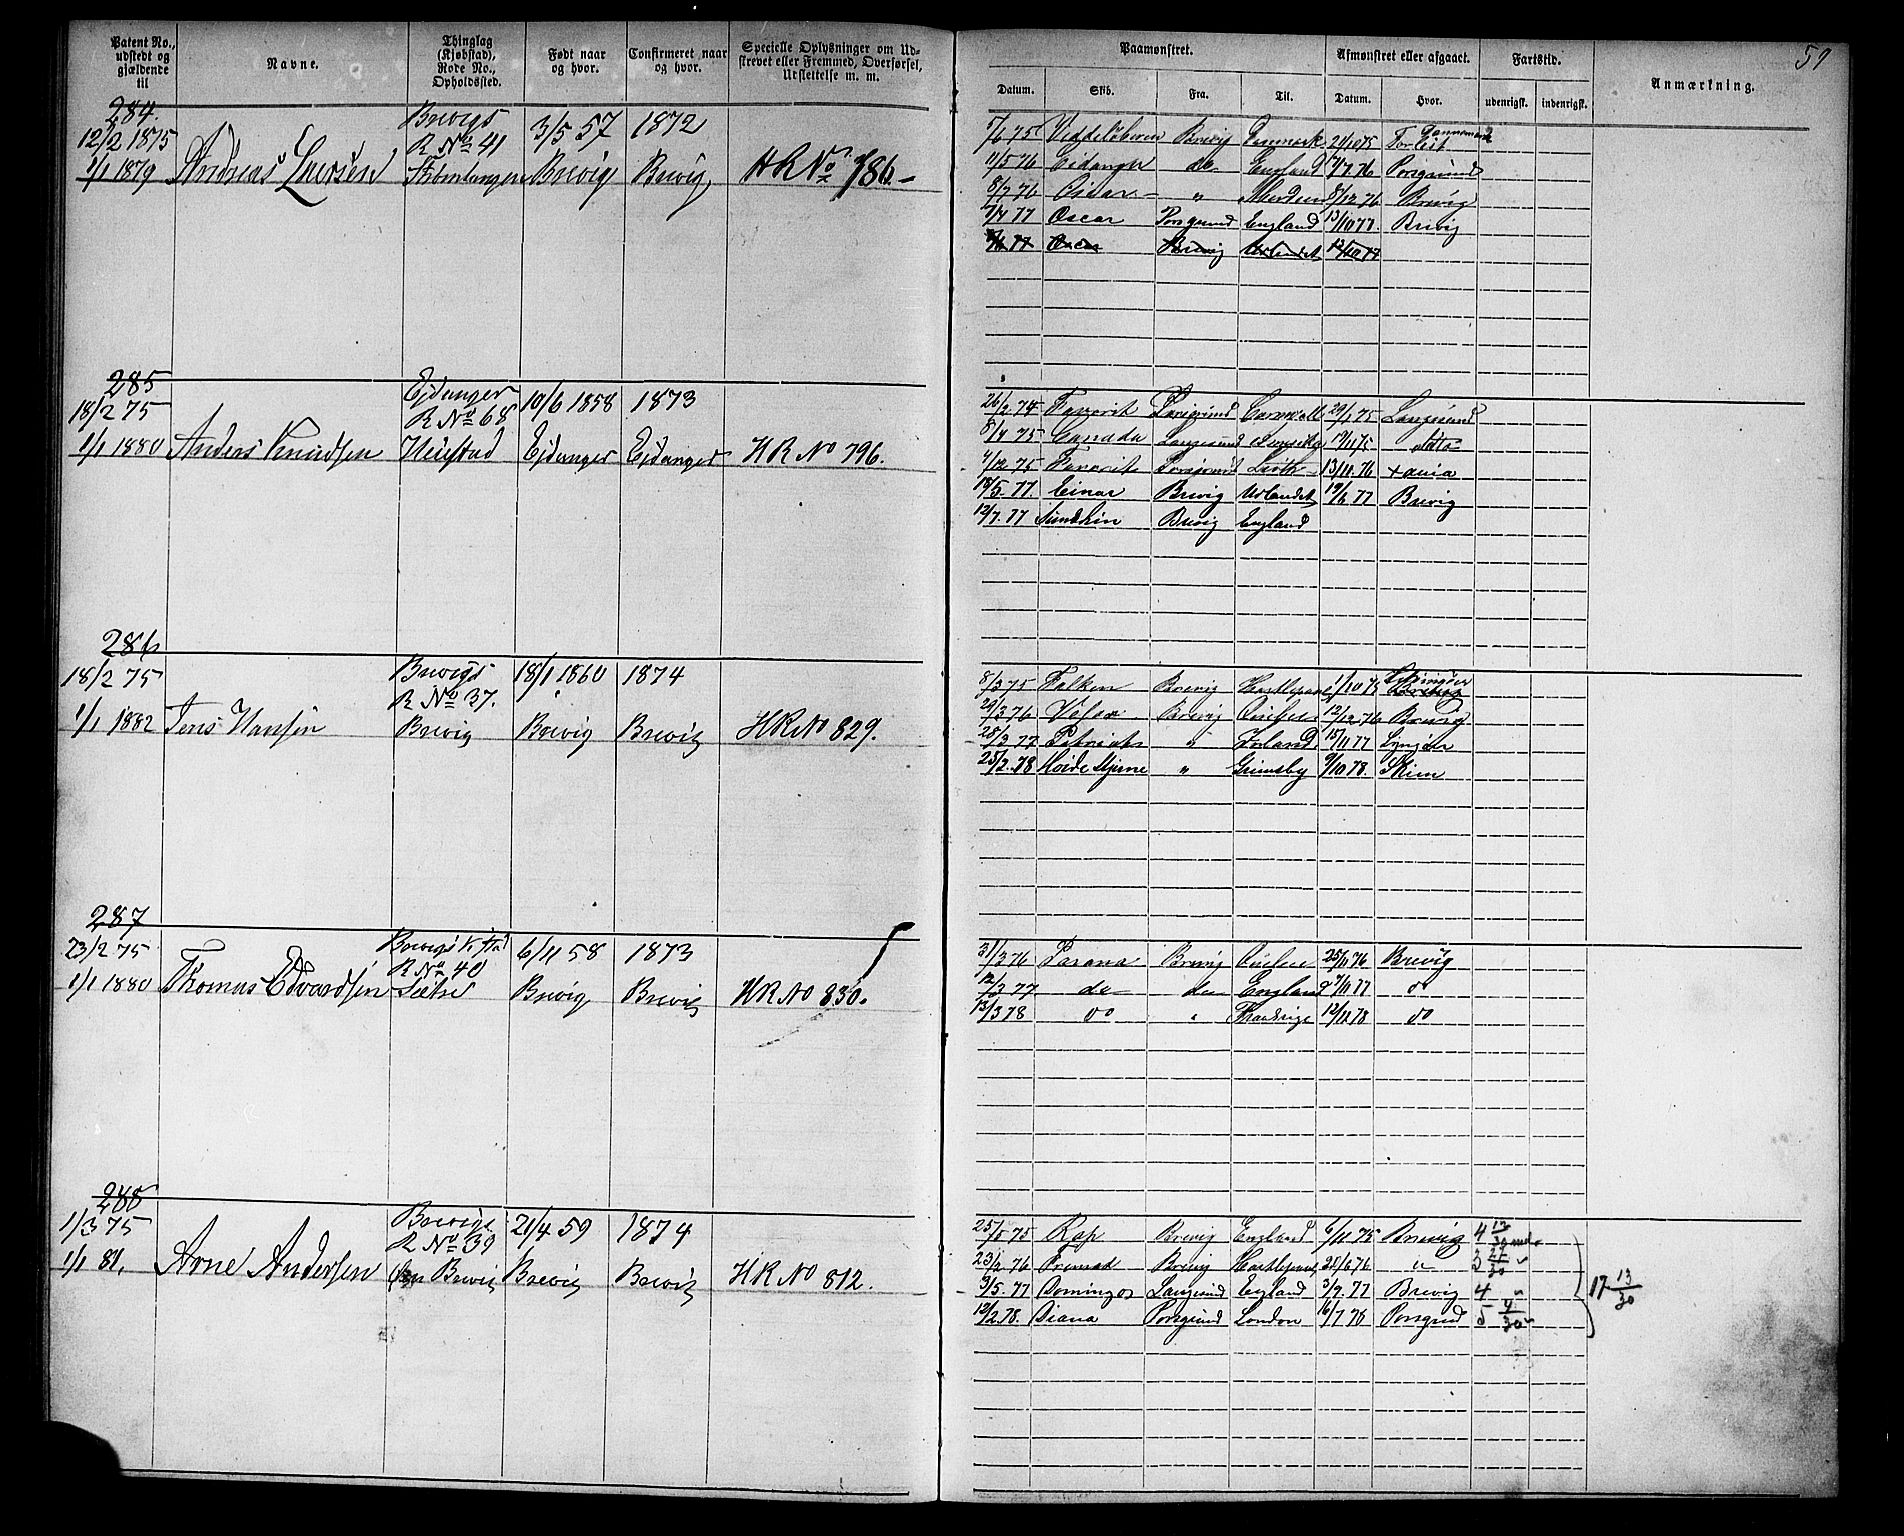 Patent No., udstedt og gjældende til
Navne.
Thinglag (Kjøbstad), Rode No., Opholdssted.
Født naar og hvor.
Confirmeret naar og hvor.
Specielle Oplysninger om Udskrevet eller Fremmed, Overførsel, Udslettelse m. m.
284.
12/2 1875
1/1 1879
Andreas Laersen
Brevigs
R No 41
3/5 57
Brevig
1872
Brevig
HR No 786.
285
18/2 75
1/1 1880
Anders Knudsen
Ejdanger
R No 68
Heistad
10/6 1858
Ejdanger
1873
Ejdanger
HR No 796.
286
18/2 75
1/1 1882
Jens Hansen
Brevigs
R No 37.
Brevig
18/1 1860
Brevig
1874
Brevig
HR No 829.
287
23/2 75
1/1 1880
Thomas Edvardsen
R No 40
6/11 58
Brevig
1873
Brevig
HR No 830.
288
1/3 75
1/1 81.
Arne Andersen
Brevigs
R No 39
Brevig
21/4 59
Brevig
1874
Brevig
HR No 812.
59
Paamønstret.
Afmønstret eller afgaaet.
Fartstid.
Anmærkning.
Datum. Skib. Fra. Til. Datum. Hvor. udenrigsk. indenrigsk.
Brevig Denmark
11/5 76 Eidanger do England 7/7 76 Porsgrund
8/7 76 Oscar " 8/12 76 Brevig
7/4 77 Oscar Porsgrund England 13/10 77. Brevig
Oscar Brevig Udlandet 13/10 77
26/2 74 Favorit Porsgrund 29/1 75 Langesund
8/4 75 Canada Langesund
4/12 75 Favorit Porsgrund Leith 13/11 76 Xania
18/5. 77. Einar Brevig Udlandet 19/6 77 Brevig
12/7. 77 Brevig England
8/3 75 Falken Brevig Hartlepool 1/10 75
29/3 76 Brevig 12/12 76 Brevig
28/3 77 Patriot " Irland 15/11 77 Lyngør
25/2. 78 " Grimsby 9/10 78. Skien
31/3 76 Parana Brevig 25/11 76 Brevig
12/3 77 do do England 7/11 77 do
13/3 78 do " Frankrige 12/11 78 do
25/5 75 Rap Brevig England 6/11 75 Brevig 4 13/30 md.
23/2 76 Brevig Hartlepool 20/6 76 " 3 27/30 "
3/5. 77 Domingos Langesund England 3/9. 77 Brevig 4 "
12/2 78. Diana Porsgrund London 6/7 78 Porsgrund 5 4/30 "
17 13/30